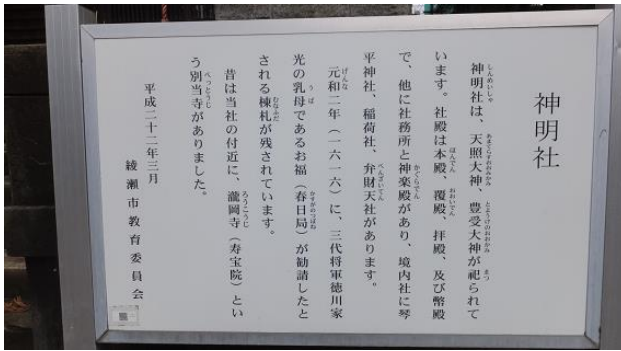 神明社
神明社は、天照大神、豊受大神が祀られて
います。社殿は本殿、覆殿、拝殿、及び幣殿
で、他に社務所と神楽殿があり、境内社に琴
平神社、稲荷社、弁財天社があります。
元和二年（一六一六）に、三代将軍徳川家
光の乳母であるお福（春日局）が勧請したと
される棟札が残されています。
昔は当社の付近に、瀧岡寺（寿宝院）とい
う別当寺がありました。
平成二十二年三月
綾瀬市教育委員会